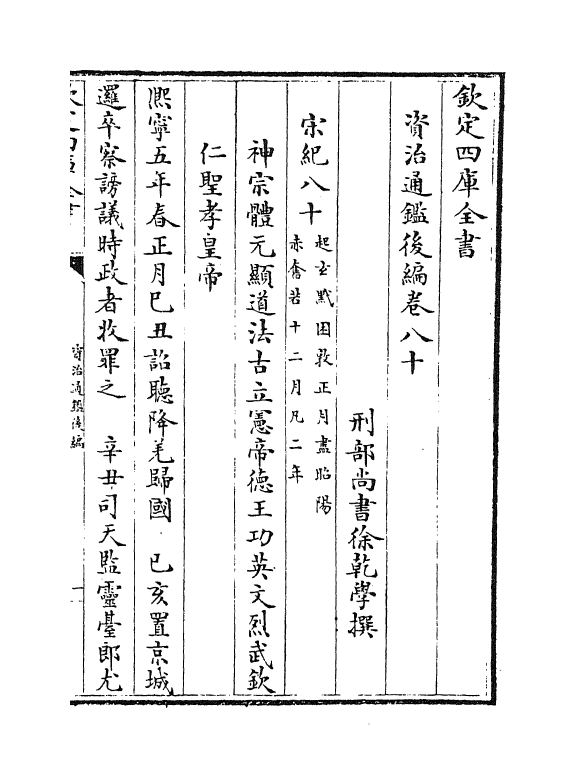 欽定四庫全書
資治通鑑後編卷八十
刑部尚書徐乾學撰
宋紀八十起玄黓困敦正月盡昭陽
赤奮若十二月凡二年
神宗體元顯道法古立憲帝德王功英文烈武欽
仁聖孝皇帝
熈寧五年春正月己丑詔聽降羌歸國 己亥置京城
邏卒察謗議時政者收罪之 辛丑司天監靈臺郎尤
資治通鑑後編
一